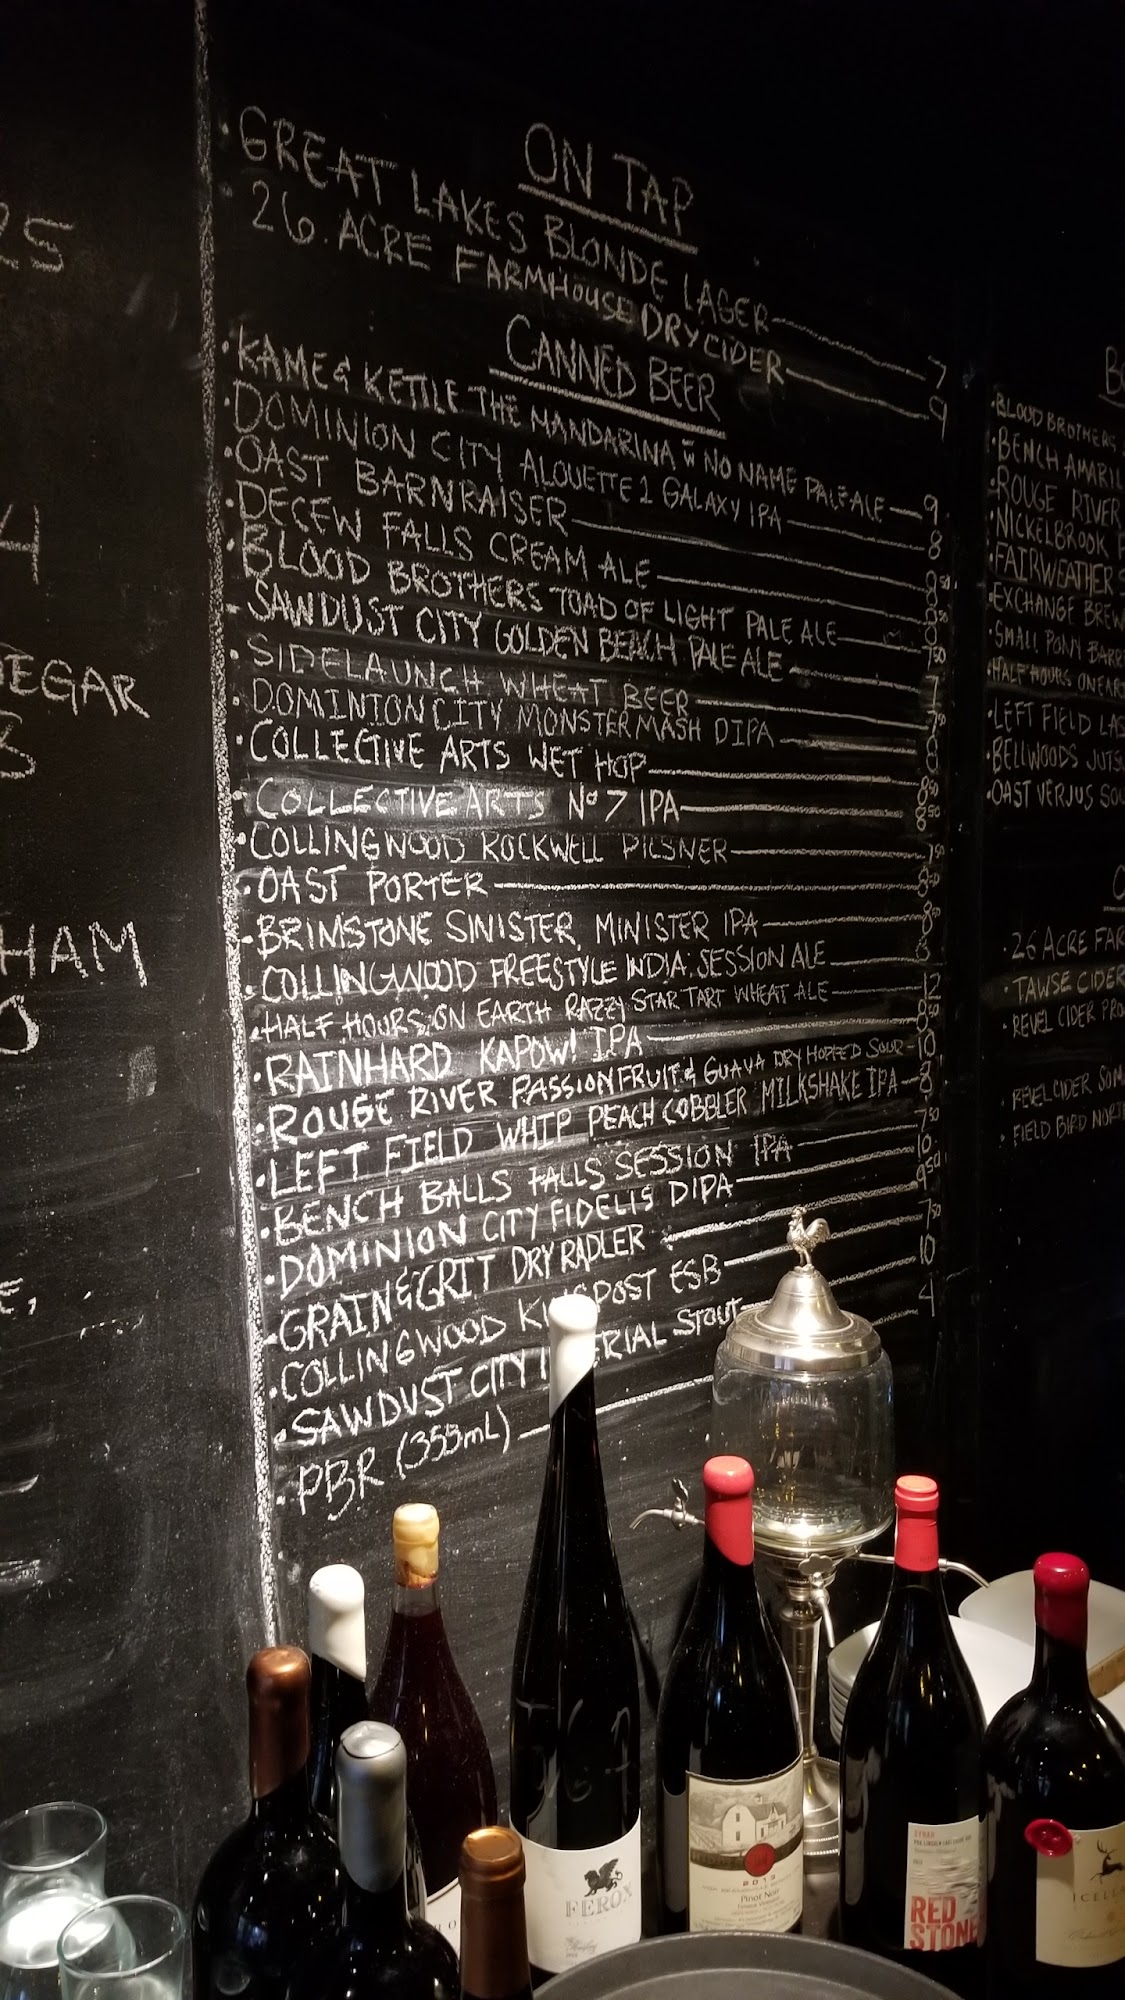 25
4
EGAR
3
HAM
0
E,
ON TAP
• GREAT LAKES BLONDE LAGER 7
• 26. ACRE FARMHOUSE DRY CIDER 9
CANNED BEER
• KAME & KETTLE THE MANDARINA w NO NAME PALE ALE 9
• DOMINION CITY ALOUETTE 2 GALAXY IPA 8
• OAST BARNRAISER
• DECEW FALLS CREAM ALE
• BLOOD BROTHERS TOAD OF LIGHT PALE ALE
• SAWDUST CITY GOLDEN BEACH PALE ALE
• SIDELAUNCH WHEAT BEER
• DOMINION CITY MONSTER MASH DIPA
• COLLECTIVE ARTS WET HOP
• COLLECTIVE ARTS No 7 IPA
• COLLINGWOOD ROCKWELL PILSNER 7 50
• OAST PORTER 8 50
• BRIMSTONE SINISTER MINISTER IPA 8 50
• COLLINGWOOD FREESTYLE INDIA SESSION ALE
• HALF HOURS ON EARTH RAZZY STAR TART WHEAT ALE 12
• RAINHARD KAPOW! IPA 8 50
• ROUGE RIVER PASSIONFRUIT & GUAVA DRY HOPPED SOUR 10
• LEFT FIELD WHIP PEACH COBBLER MILKSHAKE IPA
• BENCH BALLS FALLS SESSION IPA 7 50
• DOMINION CITY FIDELIS DIPA 10
• GRAIN & GRIT DRY RADLER 9 50
• COLLINGWOOD KINGSPOST ESB 7 50
• SAWDUST CITY IMPERIAL STOUT 10
• PBR (355mL) 4
B
• BLOOD BROTHERS
• BENCH AMARIL
• ROUGE RIVER
• NICKELBROOK
• FAIRWEATHER
• EXCHANGE BREW
• SMALL PONY BARR
• HALF HOURS ON EAR
• LEFT FIELD LAS
• BELLWOODS JUTS
• OAST VERJUS SOU
C
• 26 ACRE FAR
• TAWSE CIDER
• REVEL CIDER PRO
• REVEL CIDER SOM
• FIELD BIRD NORT
FEROX
2013
Pinot Noir
SYRAH
RED
STONE
ICELLA